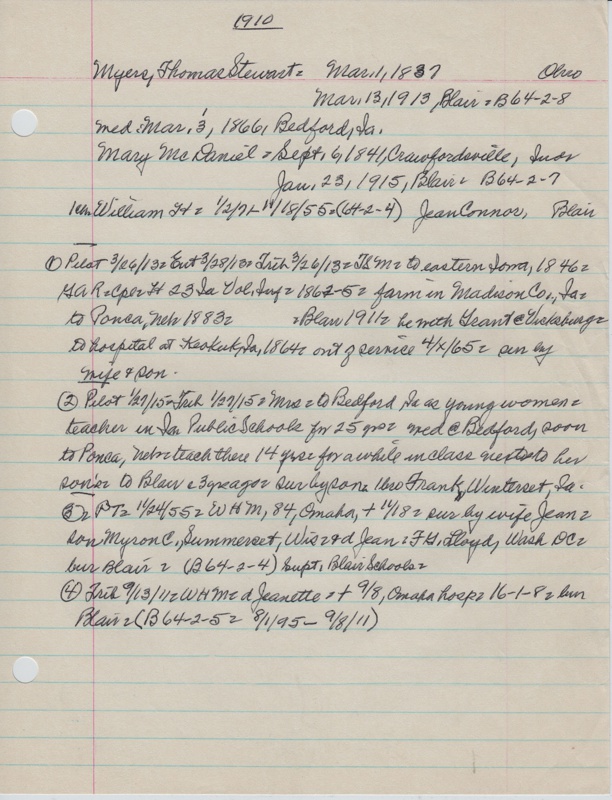 1910
Myers, Thomas Stewart = Mar. 1, 1837 Ohio
Mar. 13, 1913, Blair = B64-2-8
med: Mar. 3, 1866, Bedford, Ia.
Mary McDaniel = Sept. 6, 1841, Crawfordsville, Ind
Jan. 23, 1915, Blair = B64-2-7
William H = 1/2/71 - 11/18/55 = (64-2-4) Jean Connor, Blair
① Pilot 3/26/13 = Ent 3/28/13 = Trib 3/26/13 = TSM = to eastern Iowa, 1846 =
GAR = Cpe = H 23 Ia Vol. Inf = 1862-5 = farm in Madison Co., Ia =
to Ponca, Neb 1883 = = Blair 1911 = he with Grant @ Vicksburg =
to hospital at Keokuk, Ia, 1864 = out of service 4/x/65 = sur by
wife & son.
② Pilot 1/27/15 = Trib 1/27/15 = Mrs = to Bedford, Ia as young women =
teacher in Ia Public Schools for 25 yrs = med @ Bedford, soon
to Ponca, Neb = teach there 14 yrs = for a while in class next to her
son = to Blair = 3 yrs ago = sur by son, 1 bro Frank, Winterset, Ia.
③ = PT = 11/24/55 = WHM, 84, Omaha, + 11/18 = sur by wife Jean =
son Myron C., Summerset, Wis = & d Jean = F. H. Lloyd, Wash DC =
bur Blair = (B64-2-4) Supt. Blair Schools =
④ Trib 9/13/11 = WHM = d Jeanette = + 9/8, Omaha hosp = 16-1-8 = bur
Blair = (B64-2-5 = 8/1/95 - 9/8/11)